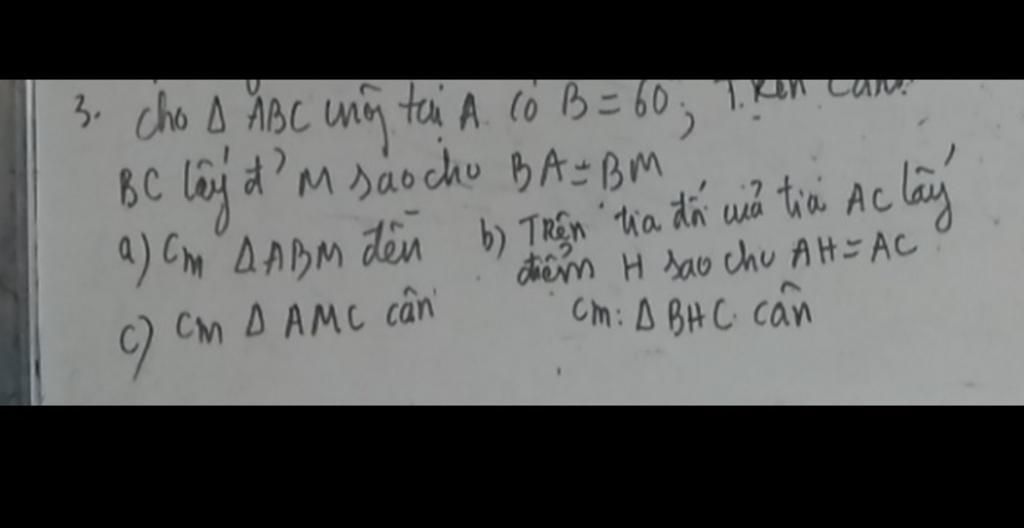 3. Cho Δ ABC vuông tại A. Có B = 60; Trên cạnh
BC lấy đ' M sao cho BA = BM
a) Cm ΔABM đều
b) Trên tia đối của tia AC lấy
điểm H sao cho AH = AC
Cm: Δ BHC cân
c) Cm Δ AMC cân